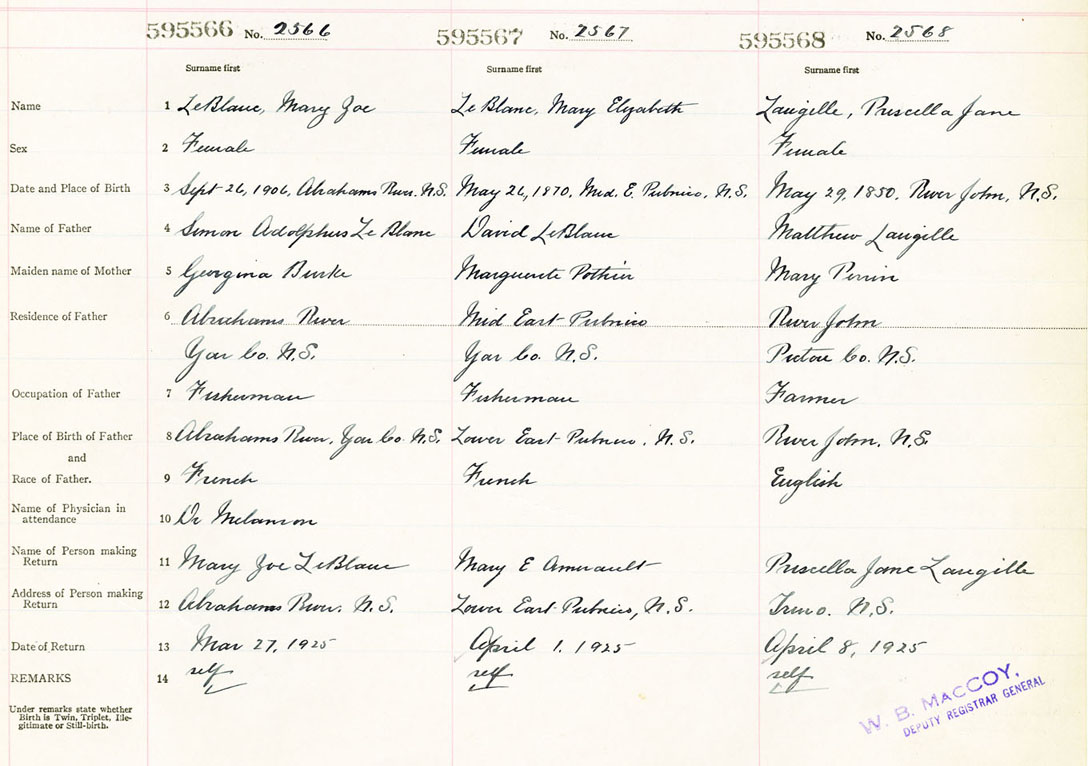 595566 No. 2566 595567 No. 2567 595568 No. 2568
Surname first Surname first Surname first
Name 1 LeBlanc, Mary Zoe Le Blanc, Mary Elizabeth Langille, Priscella Jane
Sex 2 Female Female Female
Date and Place of Birth 3 Sept 26, 1906, Abrahams River. N.S. May 26, 1870, Mid. E. Pubnico, N.S. May 29, 1850, River John, N.S.
Name of Father 4 Simon Adolphus Le Blanc David LeBlanc Matthew Langille
Maiden name of Mother 5 Georgina Burke Marguerite Pothier Mary Perrin
Residence of Father 6 Abrahams River Mid East Pubnico River John
Yar Co. N.S. Yar Co. N.S. Pictou Co. N.S.
Occupation of Father 7 Fisherman Fisherman Farmer
Place of Birth of Father 8 Abrahams River, Yar Co. N.S. Lower East Pubnico, N.S. River John, N.S.
and
Race of Father. 9 French French English
Name of Physician in
attendance 10 Dr Melanson
Name of Person making
Return 11 Mary Zoe LeBlanc Mary E Amirault Priscella Jane Langille
Address of Person making
Return 12 Abrahams River. N.S. Lower East Pubnico, N.S. Truro. N.S.
Date of Return 13 Mar 27, 1925 April 1, 1925 April 8, 1925
REMARKS 14 self self self
Under remarks state whether
Birth is Twin, Triplet, Ille-
gitimate or Still-birth.
W. B. MACCOY,
DEPUTY REGISTRAR GENERAL